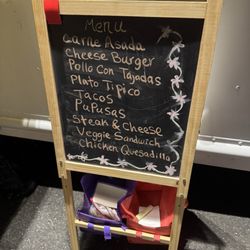 Menu
Carne Asuda
Cheese Burger
Pollo Con Tajadas
Plato Tipico
Tacos
Pupusas
Steak & Cheese
Veggie Sandwich
Chicken Quesadilla